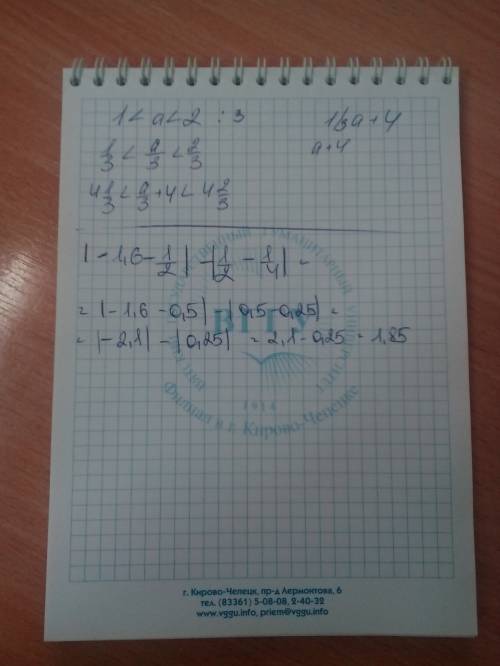 1 < a < 2 : 3
1/3 a + 4
1/3 < a/3 < 2/3
a + 4
4 1/3 < a/3 + 4 < 4 2/3
|-1,6 - 1/2| - |1/2 - 1/4| =
= |-1,6 - 0,5| - |0,5 - 0,25| =
= |-2,1| - |0,25| = 2,1 - 0,25 = 1,85
ГУМАНИТАРНЫЙ
ВГГУ
1914
Филиал в г. Кирово-Чепецке
г. Кирово-Чепецк, пр-д Лермонтова, 6
тел. (83361) 5-08-08, 2-40-32
www.vggu.info, priem@vggu.info